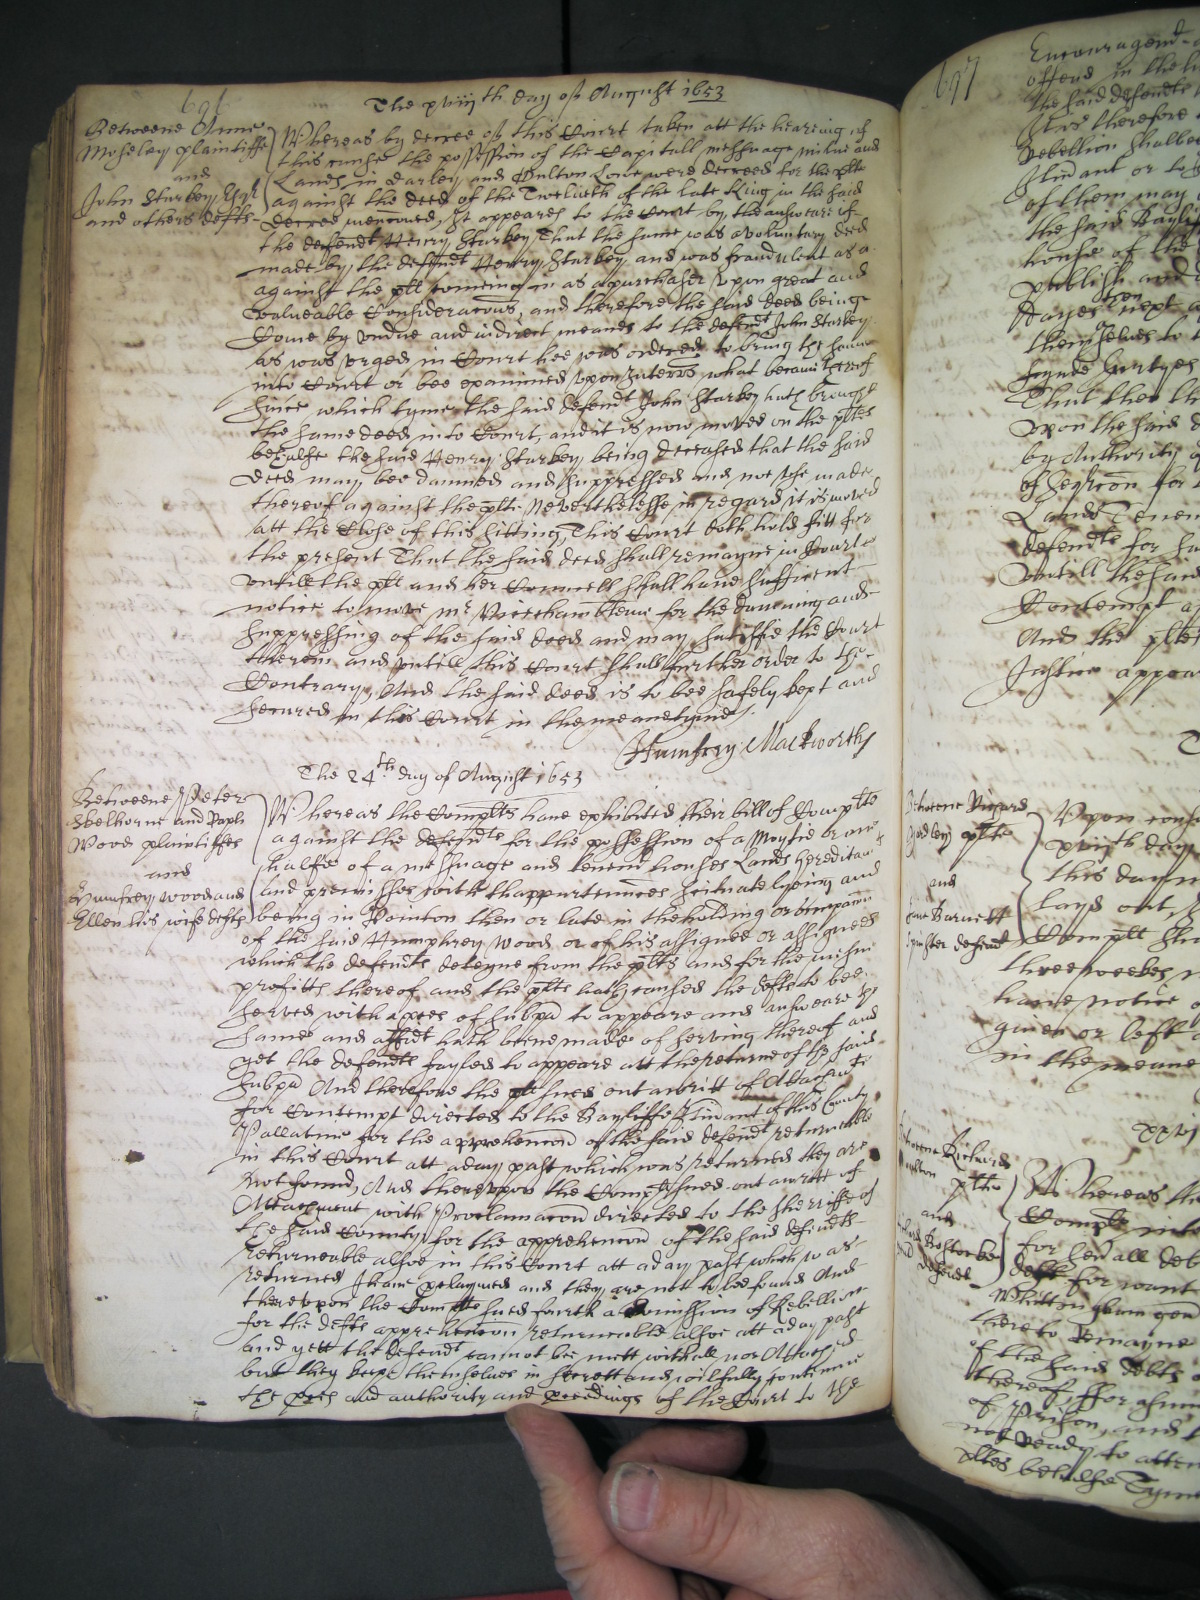 696
The xviijth day of August 1653
Betweene Anne
Moseley plaintiffe
and
John Starkey Esqr
and others defts
Whereas by decree of this Court taken att the hearing of
this cause the possession of the Capitall messuage milne and
Lands in Darley and Oulton Lowe were decreed for the plte
against the deed of the Twelueth of the late King in the said
decree menconed, It appeares to the Court by the answeare of
the defendt Henry Starkey That the same was a voluntary deed
made by the defendt Henry Starkey and was fraudulent as
against the plt comeing in as a purchaser vpon great and
valueable Consideracons, and therefore the said deed beinge
Come by vndue and indirect meanes to the defendt John Starkey
as was vrged in Court hee was ordered to bring the same
into Court or bee examined vpon Interrs what became thereof
since which tyme the said defendt John Starkey hath brought
the same deed into Court, and it is now moved on the pltes
behalfe the said Henry Starkey being deceased that the said
deed may bee damned and suppressed and noe vse made
thereof against the plte Neverthelesse in regard it is moved
att the Close of this sitting, This Court doth hold fitt for
the present That the said deed shall remayne in Court
vntill the plt and her Councell shall haue sufficient
notice to move mr Vicechamblaine for the damning and
suppressing of the said deed and may satisfie the Court
therein and vntill this Court shall further order to the
Contrary, And the said deed is to bee safely kept and
secured in this Court in the meanetyme
Humfrey Mackworth
The 24th day of August 1653
Betweene Peter
Shelborne and Raph
Wood plaintiffes
and
Humfrey Wood and
Ellen his wife defts
Whereas the Complts haue exhibited their bill of Complte
against the defendts for the possession of a Moytie or one
halfe of a messuage and tenemt houses Lands hereditamts
and premisses with thappurtennces scituate lyeing and
being in Pointon then or late in the holding or occupacon
of the said Humphrey Wood or of his assignee or assignees
which the defendts deteyne from the plts and for the meane
profitts thereof and the plts hath caused the defts to bee
served with proces of subpa to appeare and answeare the
same and affidt hath beene made of serving thereof and
yet the defendts fayled to appeare att the returne of the said
subpa And therefore the plt sued out a writt of Attachmt
for Contempt directed to the Bayliffe Itinant of this County
Pallatine for the apprehencon of the said defendts returneable
in this Court att a day past which was returned they are
not found, And therevpon the Complt sued out a writt of
Attachment with Proclamacon directed to the Sherriffe of
the said County for the apprehencon of the said defendts
returneable alsoe in this Court att a day past which was
returned I haue proclaymed and they are not to bee found And
therevpon the Complts sued fourth a Comission of Rebellion
for the defts apprehencon returneable alsoe att a day past
and yett the defendts cannot bee mett withall nor Attached
but they keepe themselues in secrett and wilfully contemne
the proces and authority and proceedings of the Court to the
697
Encouragemt
offend in the
the said defendts
It is therefore
Rebellion shalbe
Itinant or
of them may
the said Bayliffe
house of the
publish and
dayes next
themselues to
That then the
vpon the said
by Authority
of
Lands Tenem
defendts for
vntill the said
Contempt
And the pltes
Justice appear
Betweene Richard
plte
and
Jane Barnett
Spinster defend
Vpon
xviijth day
this day
layd out
Complt
three weekes
haue notice
given or left
in the meane
xxvi
Betweene Richard
plte
and
defendt
Whereas the
Complt
for
deft for want
Whittingham gen
there to Remayne
of the said debts
thereof
of Prison, and
not ready to atten
pltes behalfe